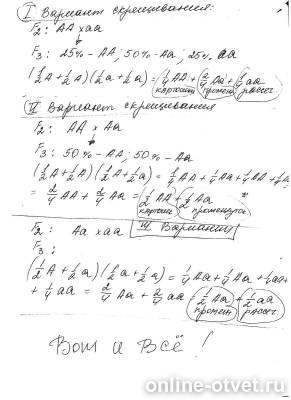 I Вариант скрещивания:
F₂: AA x aa
↓
F₃: 25% - AA; 50% - Aa; 25% aa
(½A + ½A)(½a + ½a) = ¼AA + 2/4Aa + ¼aa
II Вариант скрещивания
F₂: AA x Aa
↓
F₃: 50% - AA; 50% - Aa
(½A + ½A)(½A + ½a) = ¼AA + ¼Aa + ¼AA + ¼
= 2/4 AA + 2/4 Aa = ½AA + ½Aa
F₂: Aa x aa III Вариант
F₃:
(½A + ½a)(½a + ½a) = ¼Aa + ¼Aa + ¼aa +
+ ¼aa = 2/4 Aa + 2/4 aa = ½Aa + ½aa
Вот и Всё!
online-otvet.ru